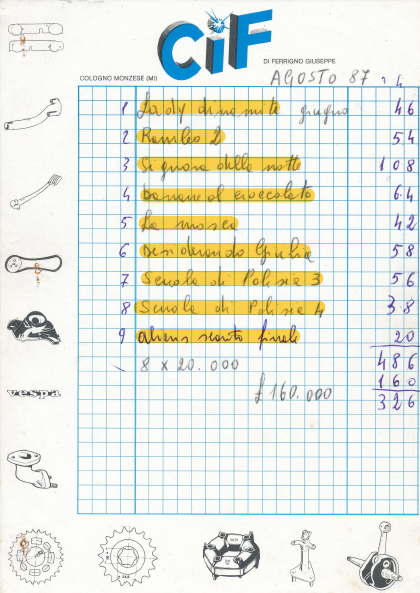 CiF
DI FERRIGNO GIUSEPPE
COLOGNO MONZESE (MI)
AGOSTO 87
1 Lady dinamite giugno 46
2 Rambo 2 54
3 Signora della notte 108
4 banane al cioccolato 64
5 La mosca 42
6 Desiderando Giulia 58
7 Scuola di Polizia 3 56
8 Scuola di Polizia 4 38
9 aliens scontro finale 20
8 x 20.000 486
£160.000 160
326
vespa